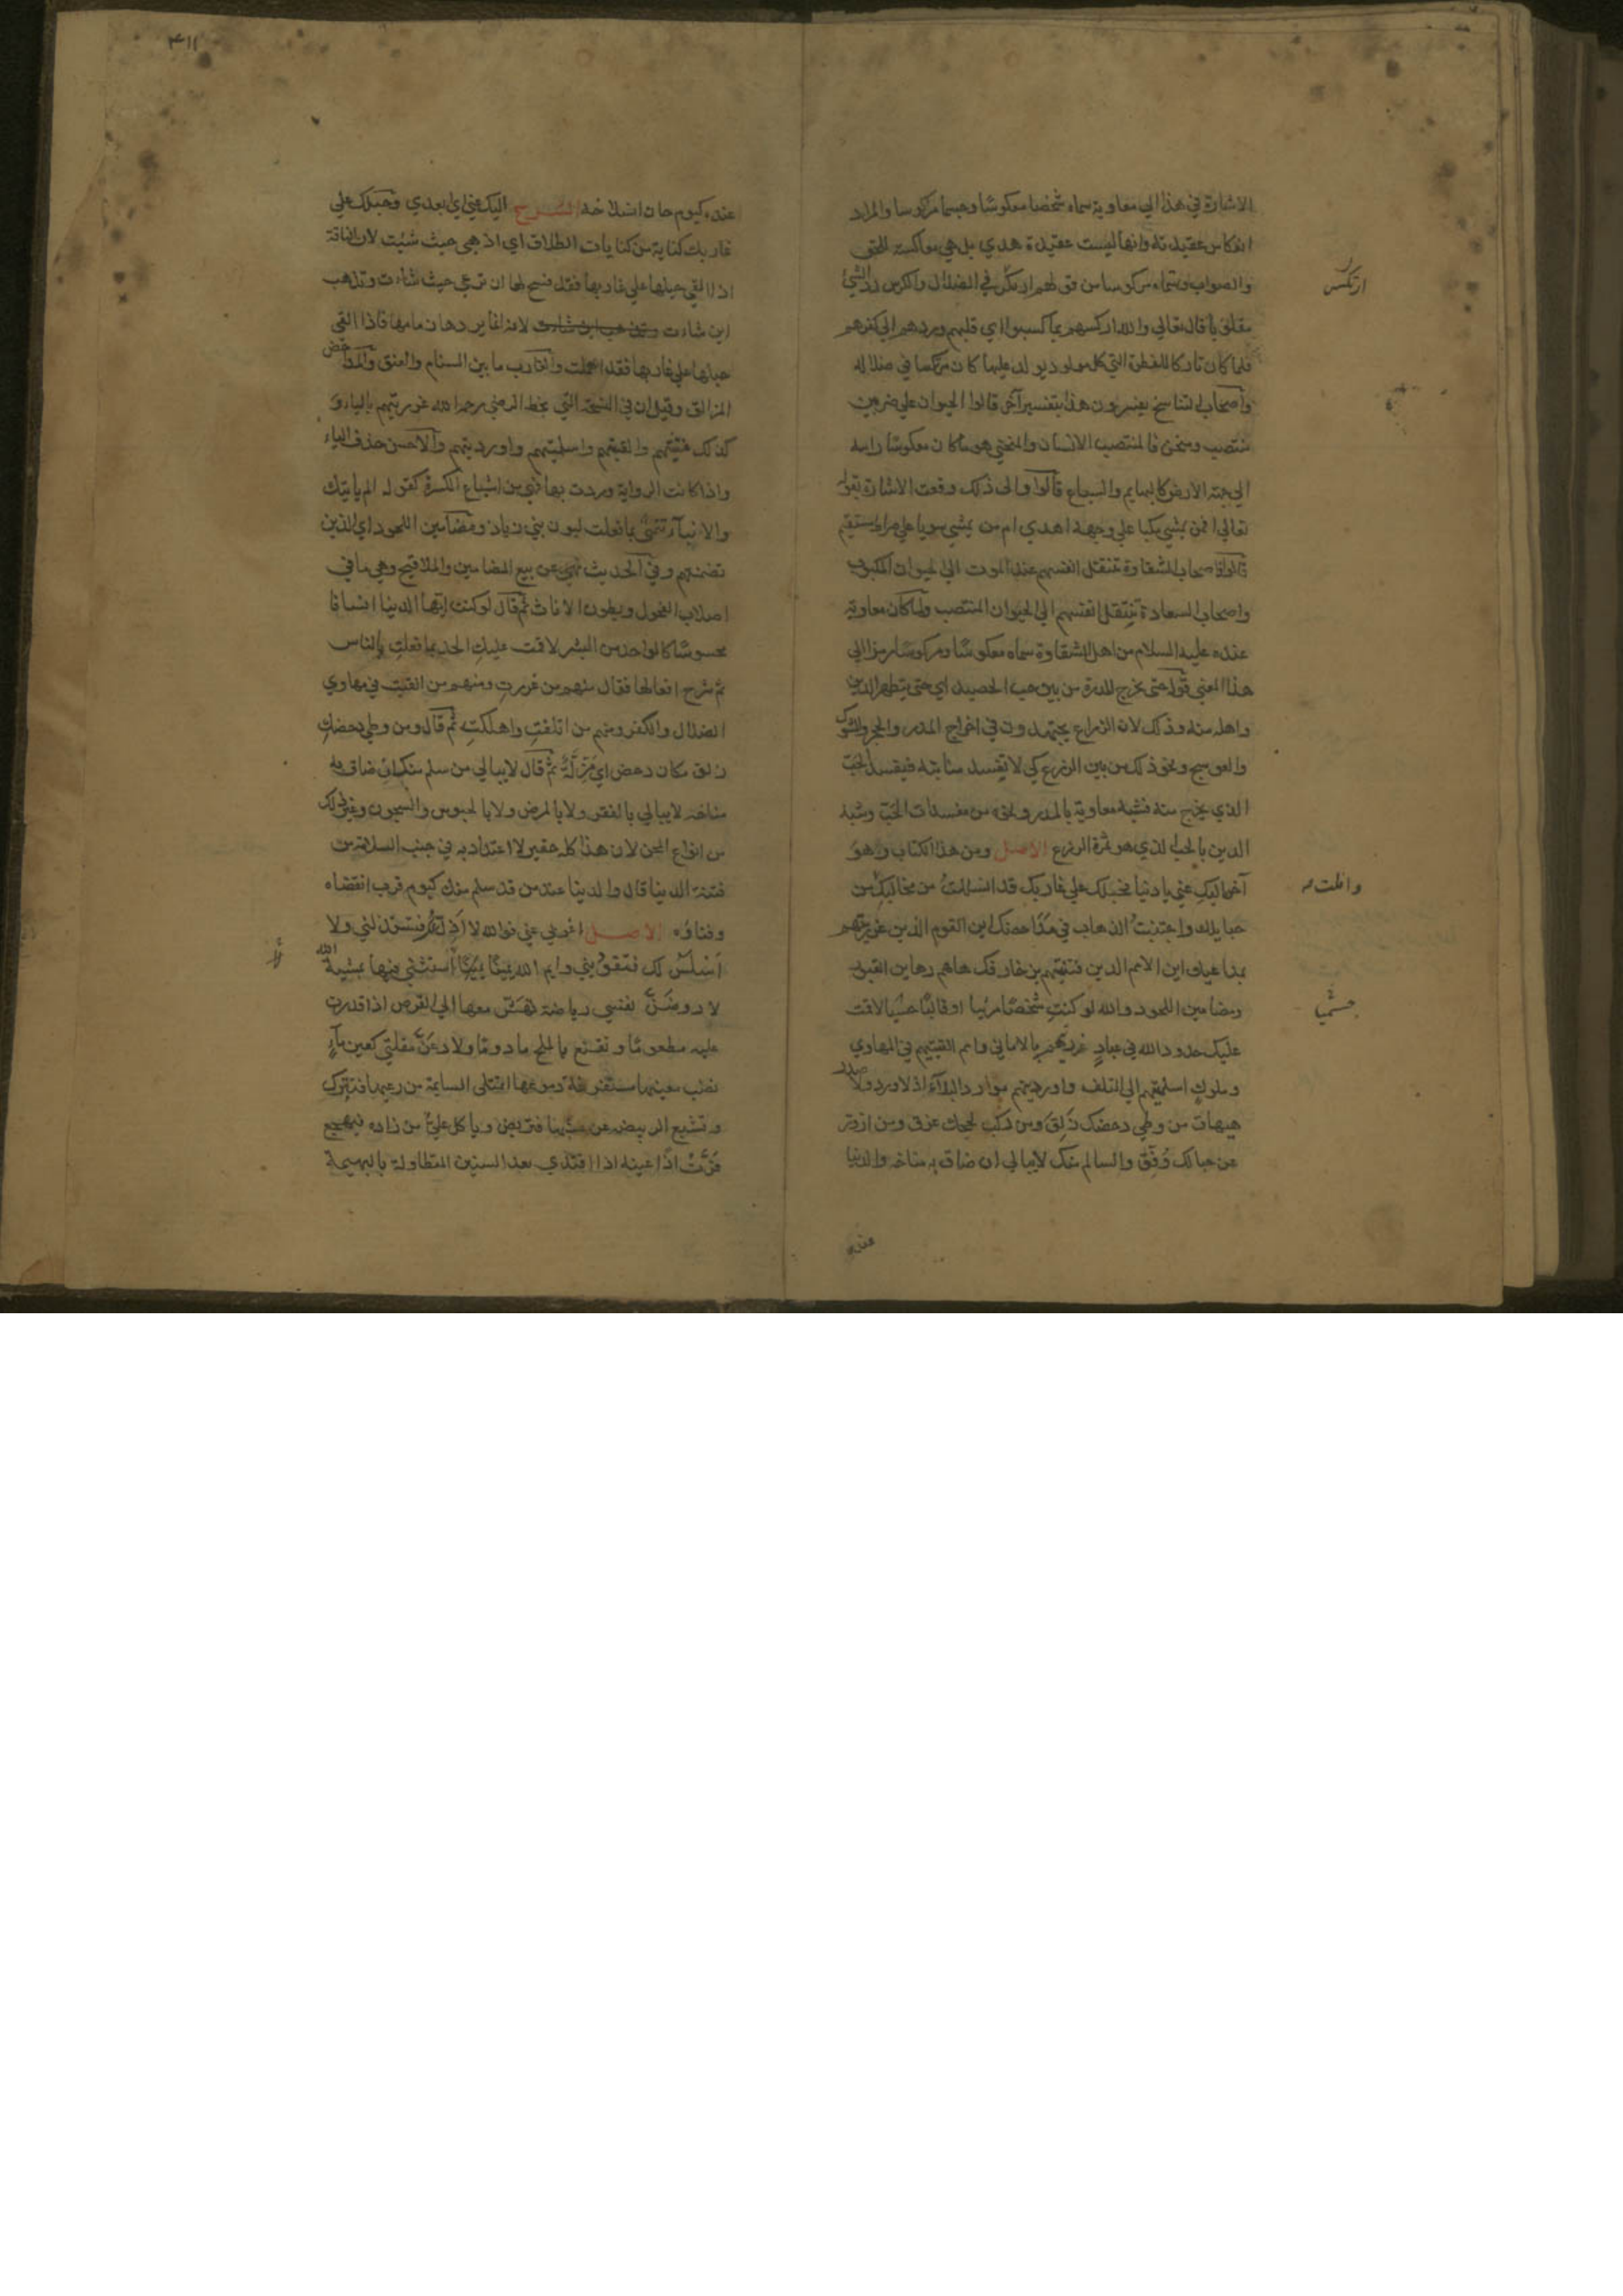 الاشارة في هذا الي معاوية سماه شخصا معكوسا وجسما مركوسا والمراد
انعكاس عقيدته وانها ليست عقيدة هدي بل هي معاكسة للحق
والصواب وسماه مركوسا من قولهم ارتكس في الضلال والركس رد الشئ
مقلوبا قال تعالي والله اركسهم بما كسبوا اي قلبهم وردهم الي كفرهم
فلما كان تاركا للفطرة التي كل مولود يولد عليها كان مرتكسا في ضلاله
واصحاب التناسخ يفسرون هذا بتفسير آخر قالوا الحيوان علي ضربين
منتصب ومنحن فالمنتصب الانسان والمنحني هو ما كان معكوسا راسه
الي جهة الارض كالبهايم والسباع قالوا والي ذلك وقعت الاشارة بقوله
تعالي افمن يمشي مكبا علي وجهه اهدي ام من يمشي سويا علي صراط مستقيم
قالوا فاصحاب الشقاوة تنتقل انفسهم عند الموت الي الحيوان المكبوب
واصحاب السعادة تنتقل انفسهم الي الحيوان المنتصب ولما كان معاوية
عنده عليه السلام من اهل الشقاوة سماه معكوسا ومركوسا رمزا الي
هذا المعني قوله حتي تخرج المدرة من بين حب الحصيد اي حتي يتطهر الدين
واهله منه وذلك لان الزراع يجتهدون في اخراج المدر والحجر والشوك
والعوسج ونحو ذلك من بين الزرع كي لا تفسد منابته فيفسد الحب
الذي يخرج منه فشبه معاوية بالمدر ونحوه من مفسدات الحب وشبه
الدين بالحب الذي هو ثمرة الزرع الاصل ومن هذا الكتاب وهو
آخره اليكِ عني يا دنيا فحبلك علي غاربك قد انسللتُ من مخاليبك
حبايلك واجتنبتُ الذهاب في مداحضك اين القوم الذين غررتهم
بمداعبك اين الامم الذين فتنتهم بزخارفك هاهم رهاين القبور
ومضامين اللحود والله لو كنتِ شخصا مرئيا او قالبا حسيا لاقمت
عليك حدود الله في عبادٍ غررتهم بالاماني وامم القيتهم في المهاوي
وملوكٍ اسلمتهم الي التلف واوردتهم موارد البلآء اذ لا ورد ولا صدر
هيهات من وطي دحضك زَلِقَ ومن ركب لججك غرق ومن ازور
عن حبالك وُفِّقَ والسالم منك لا يبالي ان ضاق به مناخه والدنيا
عنده
ارتكس
وافلت
جسميا
٤١١
عنده كيوم حان انسلاخه الشرح اليك عني اي ابعدي وحبلك علي
غاربك كناية من كنايات الطلاق اي اذهبي حيث شئت لان الناقة
اذا القي حبلها علي غاربها فقد فسح لها ان ترعي حيث شاءت وتذهب
اين شاءت وتذهب اين شاءت لانه انما يردها زمامها فاذا القي
حبلها علي غاربها فقد اهملت والغارب ما بين السنام والعنق والمداحض
المزالق وقيل ان في النسخة التي بخط الرضي رحمه الله غررتيهم بالياء و
كذلك فتنتيهم والقيتيهم واسلمتيهم واوردتيهم والاحسن حذف الياء
واذا كانت الرواية وردت بها فهي من اشباع الكسرة كقوله الم ياتيك
والانبآء تنمي بما فعلت لبون بني زياد ومضامين اللحود اي الذين
تضمنتهم وفي الحديث نهي عن بيع المضامين والملاقيح وهي ما في
اصلاب الفحول وبطون الاناث ثم قال لو كنت ايتها الدنيا انسانا
محسوسا كالواحد من البشر لاقمت عليكِ الحد بما فعلتِ بالناس
ثم شرح افعالها فقال منهم من غررتِ ومنهم من القيت في مهاوي
الضلال والكفر ومنهم من اتلفتِ واهلكتِ ثم قال ومن وطي دحضكِ
زلق مكان دحض اي مَزِلَّةٌ ثم قال لا يبالي من سلم منك ان ضاق به
مناخه لا يبالي بالفقر ولا بالمرض ولا بالحبوس والسجون وغير ذلك
من انواع المحن لان هذا كله حقير لا اعتداد به في جنب السلامة من
فتنة الدنيا قال والدنيا عند من قد سلم منك كيوم قرب انقضاه
وفناؤه الاصل اعزبي عني فوالله لا اَذِلُّ لكِ فتستذليني ولا
اَسْلَسُ لك فتقوديني وايم الله يمينًا يميناً استثني فيها بمشية الله
لاروضَنَّ نفسي رياضة تهش معها الي القرص اذا قدرت
عليه مطعومًا وتقنع بالملح مادومًا ولادعَنَّ مقلتي كعين مآءٍ
نضب معينها مستفرغة دموعها اتمتلي السايمة من رعيها فتبرك
وتشبع الربيضة من عشبها فتربض وياكل عليٌّ من زاده فيهجع
قرَّتْ اذًا عينه اذا اقتدي بعد السنين المتطاولة بالبهيمة